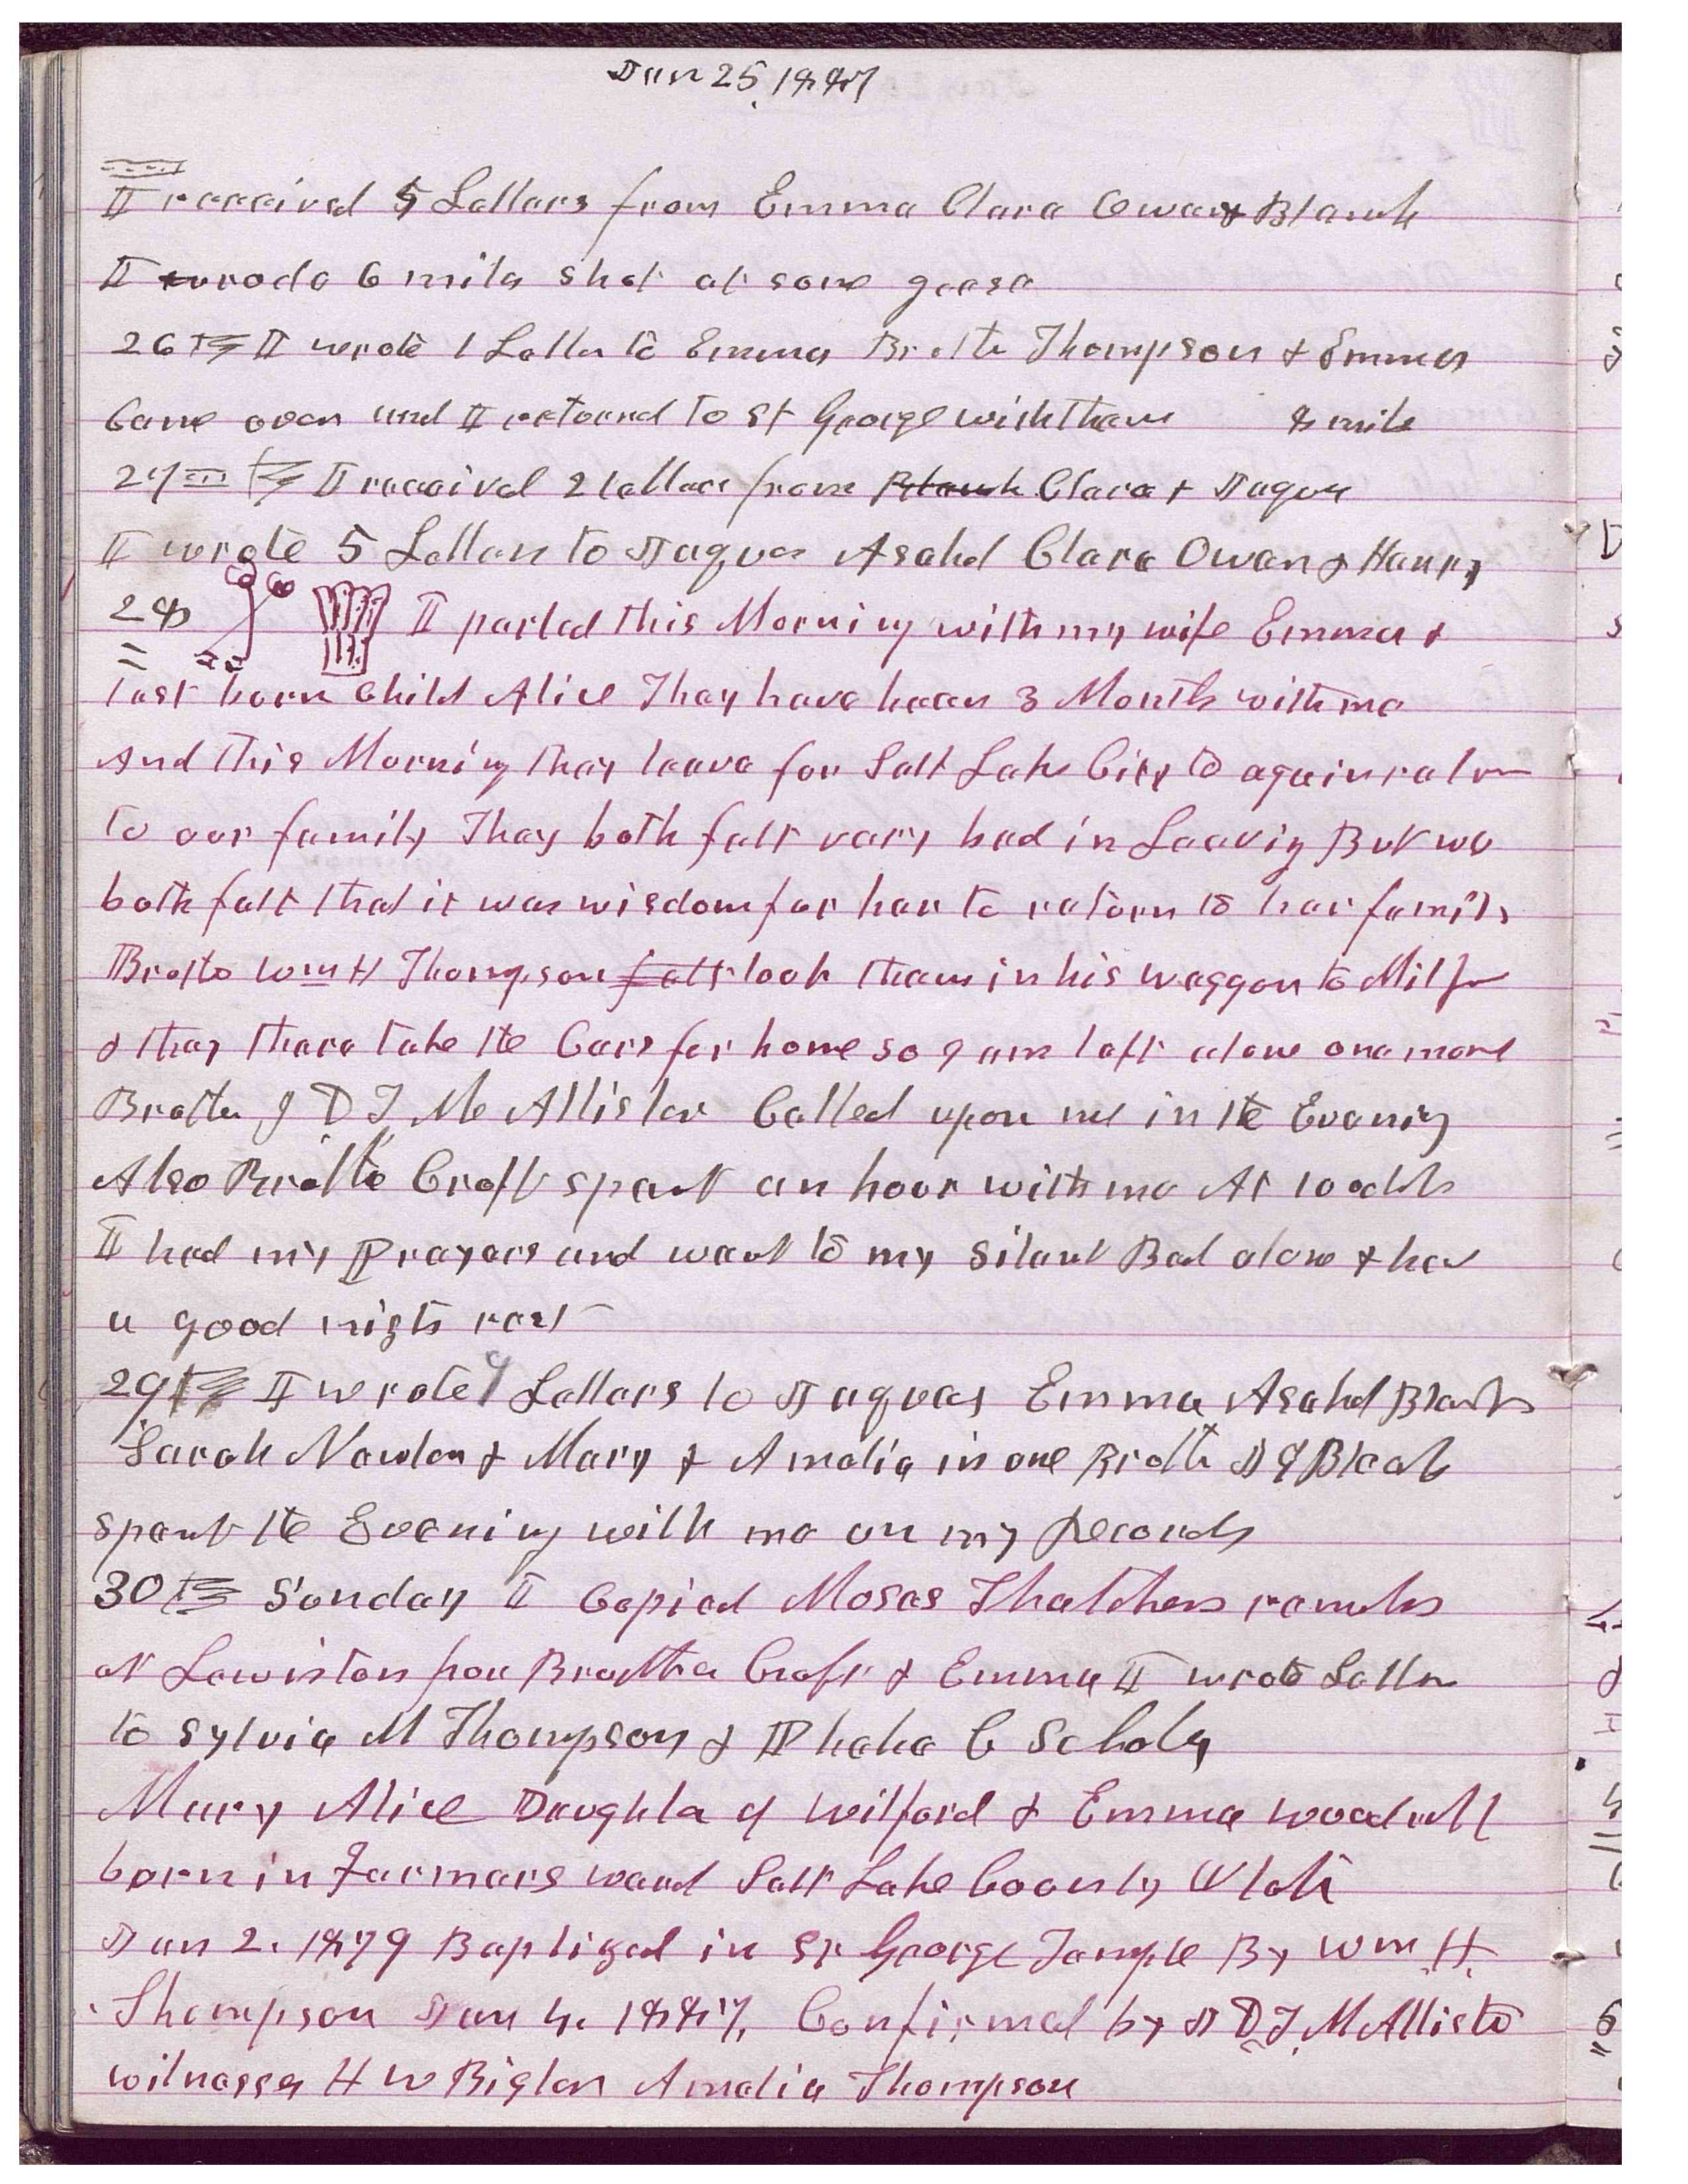 Jan 25, 1887
I received 5 Letters from Emma Clara Owen & Blanch
I rode 6 mile shot at some geese
26th I wrote 1 Letter to Emma Brother Thompson & Emma
Came over and I returnd to St George with them 8 mile
27th I received 2 letters from Blanch Clara & Jaques
I wrote 5 Letters to Jaques Asahel Clara Owen & Henry
28 I parted this Morning with my wife Emma &
last born Child Alice They have been 3 Month with me
And this Morning they leave for Salt Lake City to again return
to our family They both felt very bad in Leaving But we
both felt that it was wisdom for her to return to her family
Brother Wm H Thompson felt took them in his waggon to Milford
& they there take the Cars for home so I am left alone once more
Brother J D T McAllister Called upon me in the Evening
Also Brother Croft spent an hour with me At 10 oclok
I had my Prayers and went to my silent Bed alone & had
a good nights rest
29th I wrote 7 Letters to Jaques Emma Asahel Blanch
Sarah Newton & Mary & Amelia in one Brother J G Bleak
spent the Evening with me on my Records
30th Sunday I Copied Moses Thatchers remarks
at Lewiston for Brother Croft & Emma I wrote Letter
to Sylvia M Thompson & Phebe C Scholes
Mary Alice Daughter of Wilford & Emma Woodruff
born in Farmers ward Salt Lake County Utah
Jan 2. 1879 Baptized in St George Temple By Wm H.
Thompson Jan 4. 1887, Confirmed by J D T. McAllister
witnesses H W Bigler Amelia Thompson